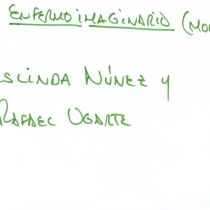 ENFERMO IMAGINARIO (MO
SLINDA NÚÑEZ Y
RAFAEL UGARTE